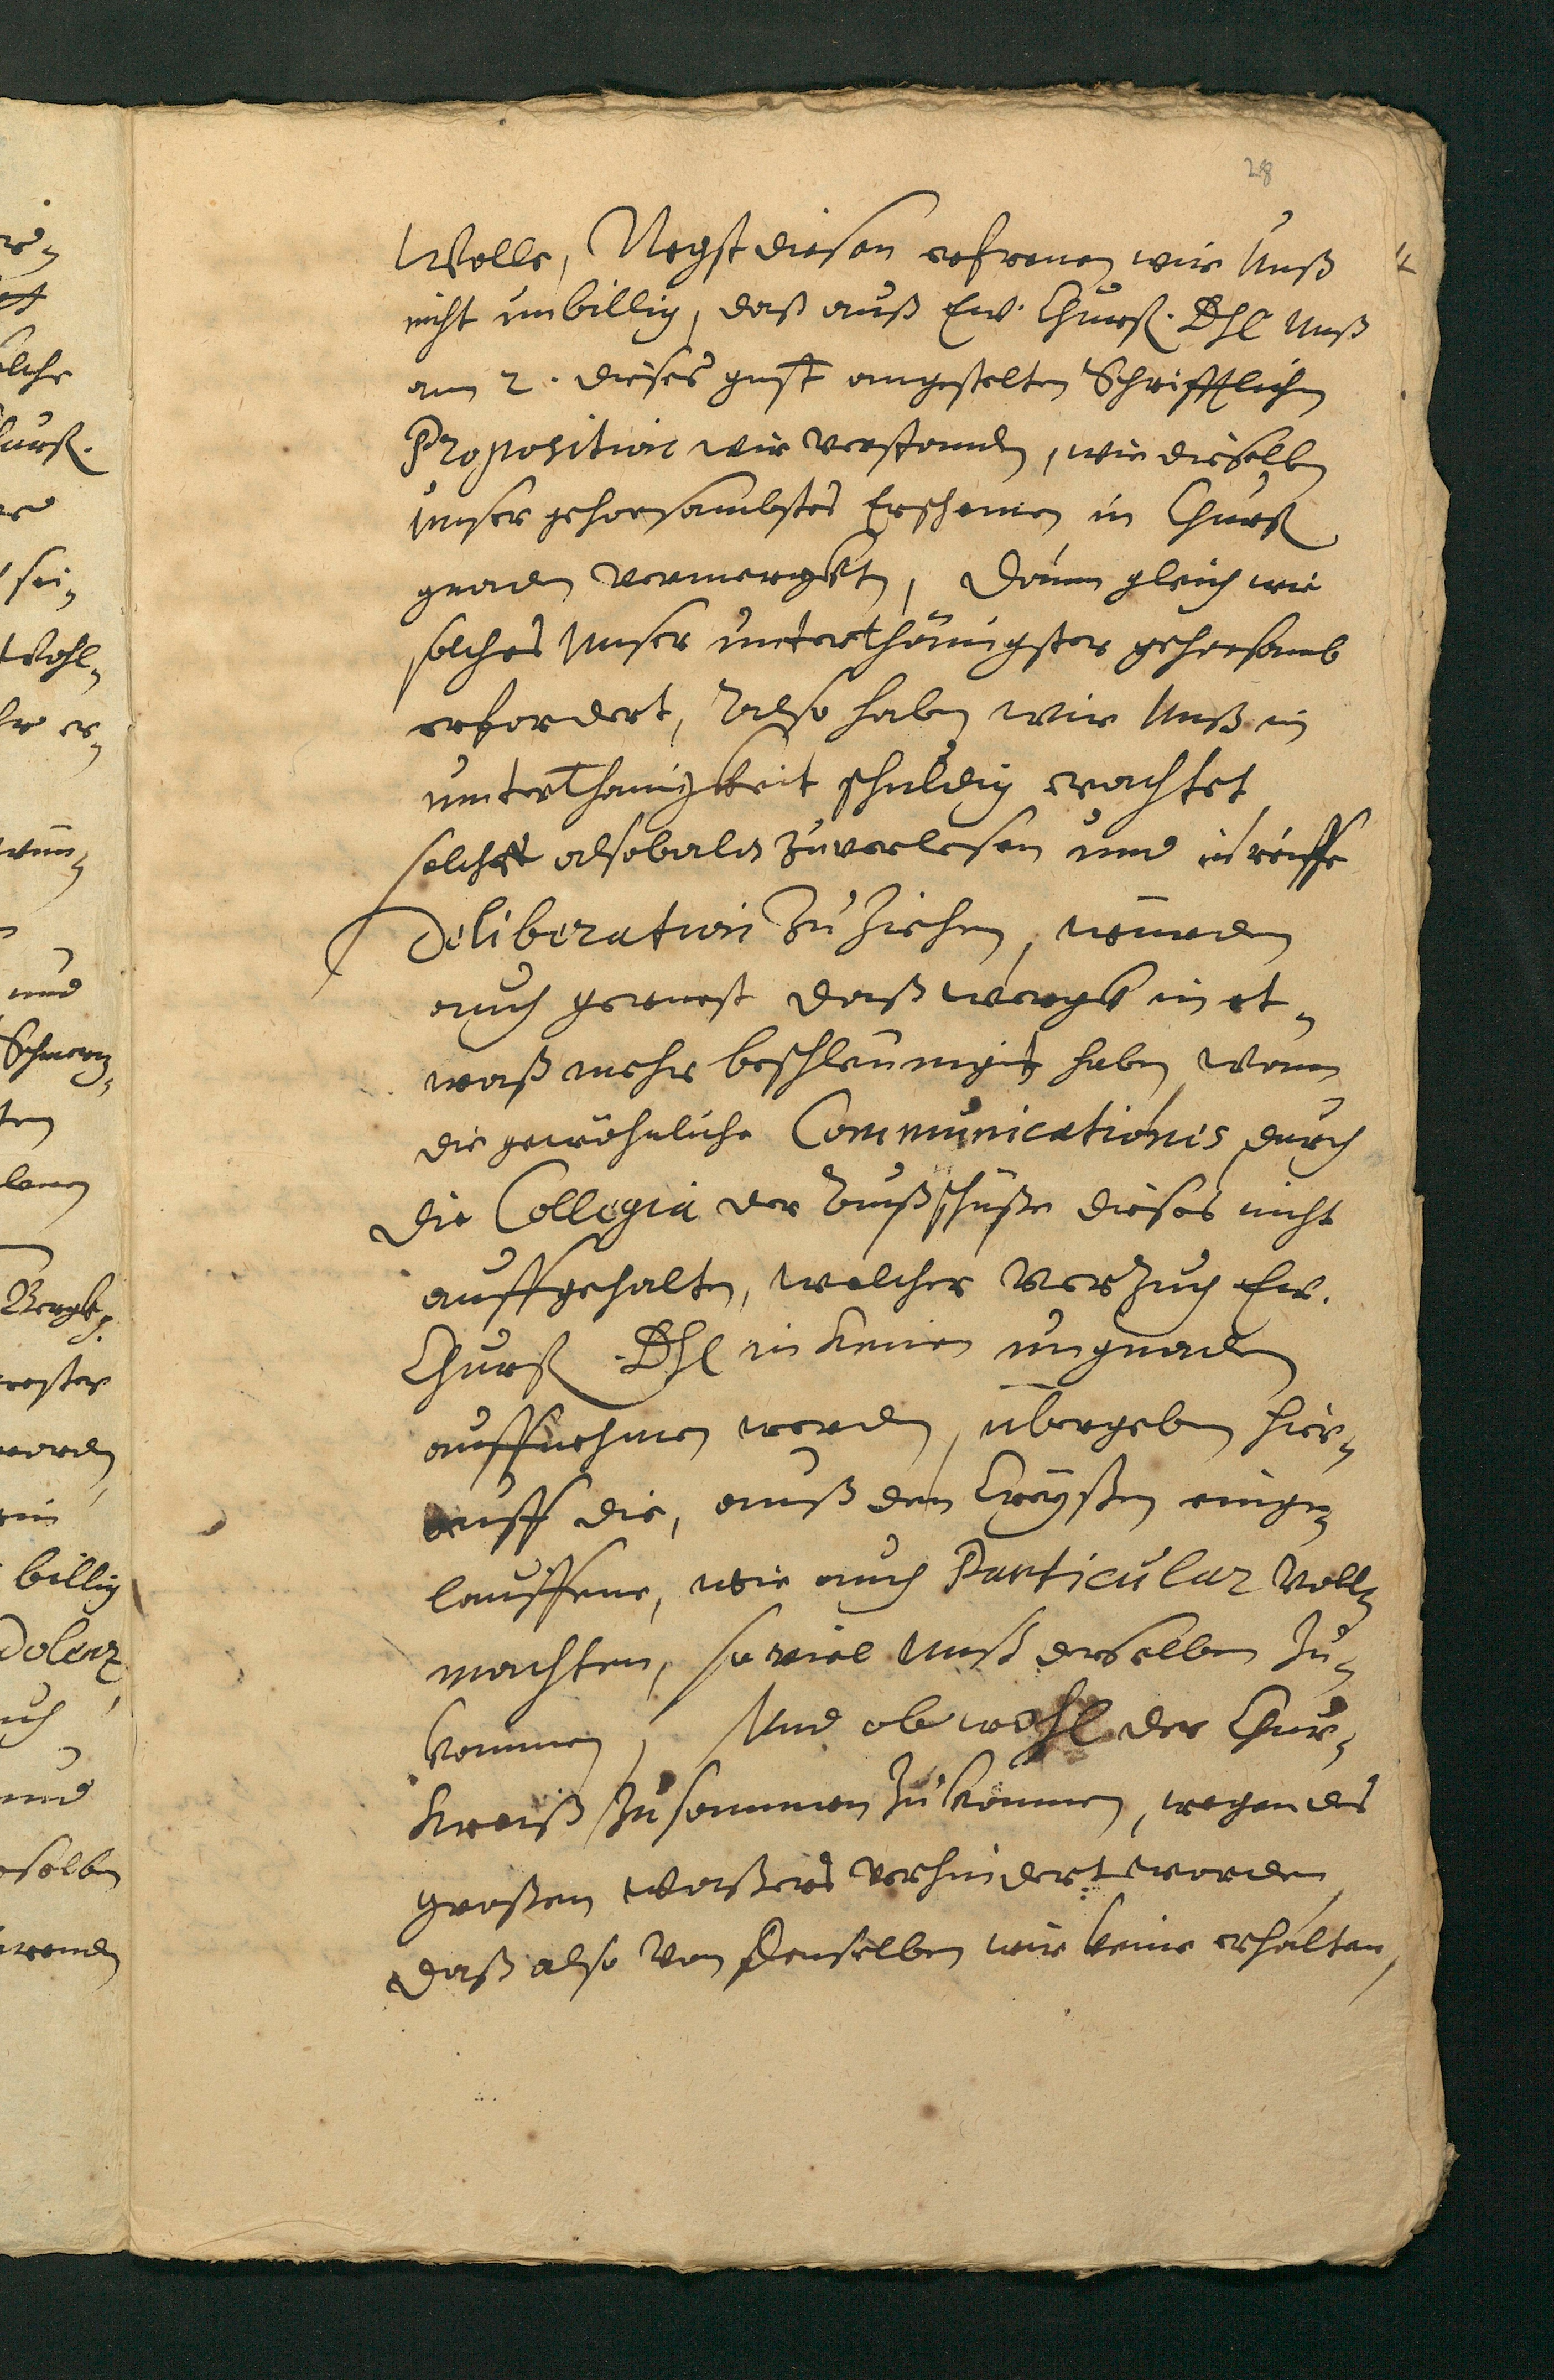 28
Wolle, Negst diesen erfrenen wir Unß
nicht unbillig, daß auß Ew. Churf. Dhl Unß
am 2. dieses gnst angestelten Schrifftlichen
Proposition wir verstanden, wie dieselben
Unser gehorsambstes Erscheinen in Churf
gnaden vermergkt, Dann gleich wie
solches Unser unterthänigster gehorsamb
erfordert, Also haben wir Unß in
unterthänigkeit schuldig erachtet
solche alsobald zuverlesen und in reiffe
Deliberation zu ziehen, würden
auch gerne daß wergk in et-
waß mehr beschleuniget haben, wann
die gewöhnliche Communicationes durch
die Collegia der Außschüße dieses nicht
auffgehalten, welcher Verzuch Ew.
Churf. Dhl in keinen ungnaden
auffnehmen werden, übergeben hier-
auff die, auß den Creyßen einge-
lauffene, wie auch Particular Voll-
machten, so viel Unß derselben zu-
kommen, Und ob wohl der Chur-
Kreiß zusammen zukommen, wegen des
großen waßers verhindert worden,
daß also von Denselben wir keine erhalten,